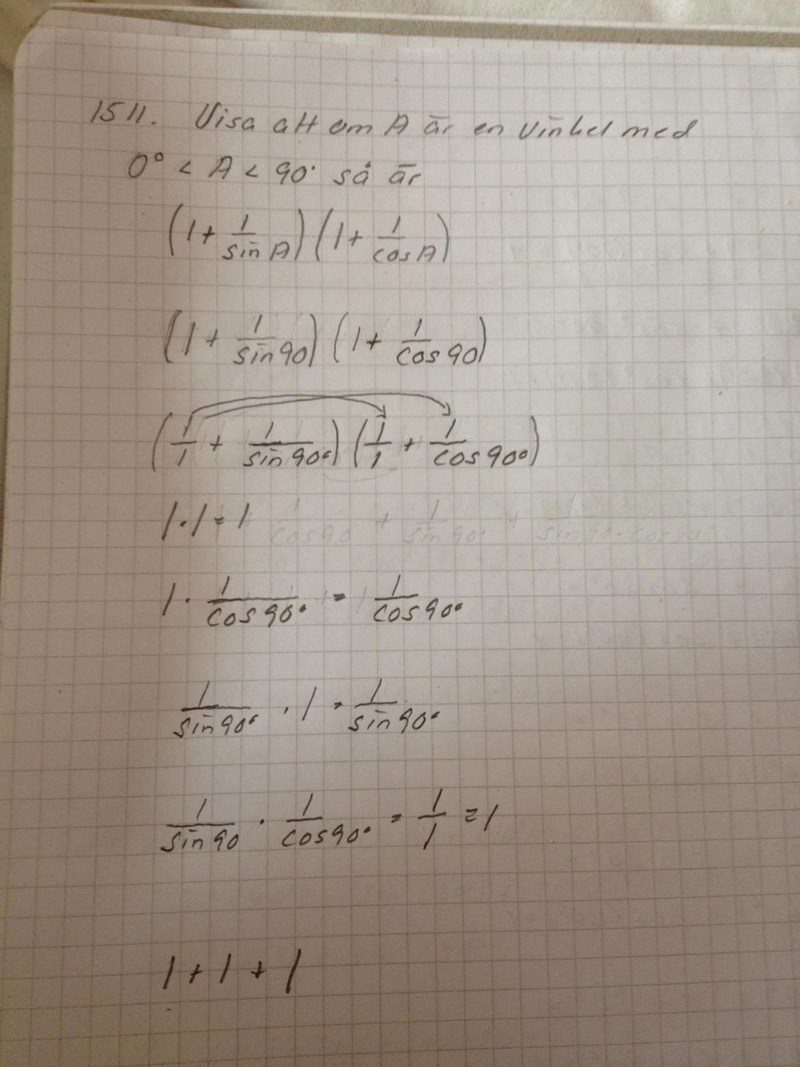 1511. Visa att om A är en vinkel med
0° < A < 90° så är
(1 + 1/sin A) (1 + 1/cos A)
(1 + 1/sin 90) (1 + 1/cos 90)
(1/1 + 1/sin 90°) (1/1 + 1/cos 90°)
1 · 1 = 1 1/cos 90 + 1/sin 90° + 1/sin 90° · cos 90°
1 · 1/cos 90° = 1/cos 90°
1/sin 90° · 1 = 1/sin 90°
1/sin 90 · 1/cos 90° = 1/1 = 1
1 + 1 + 1